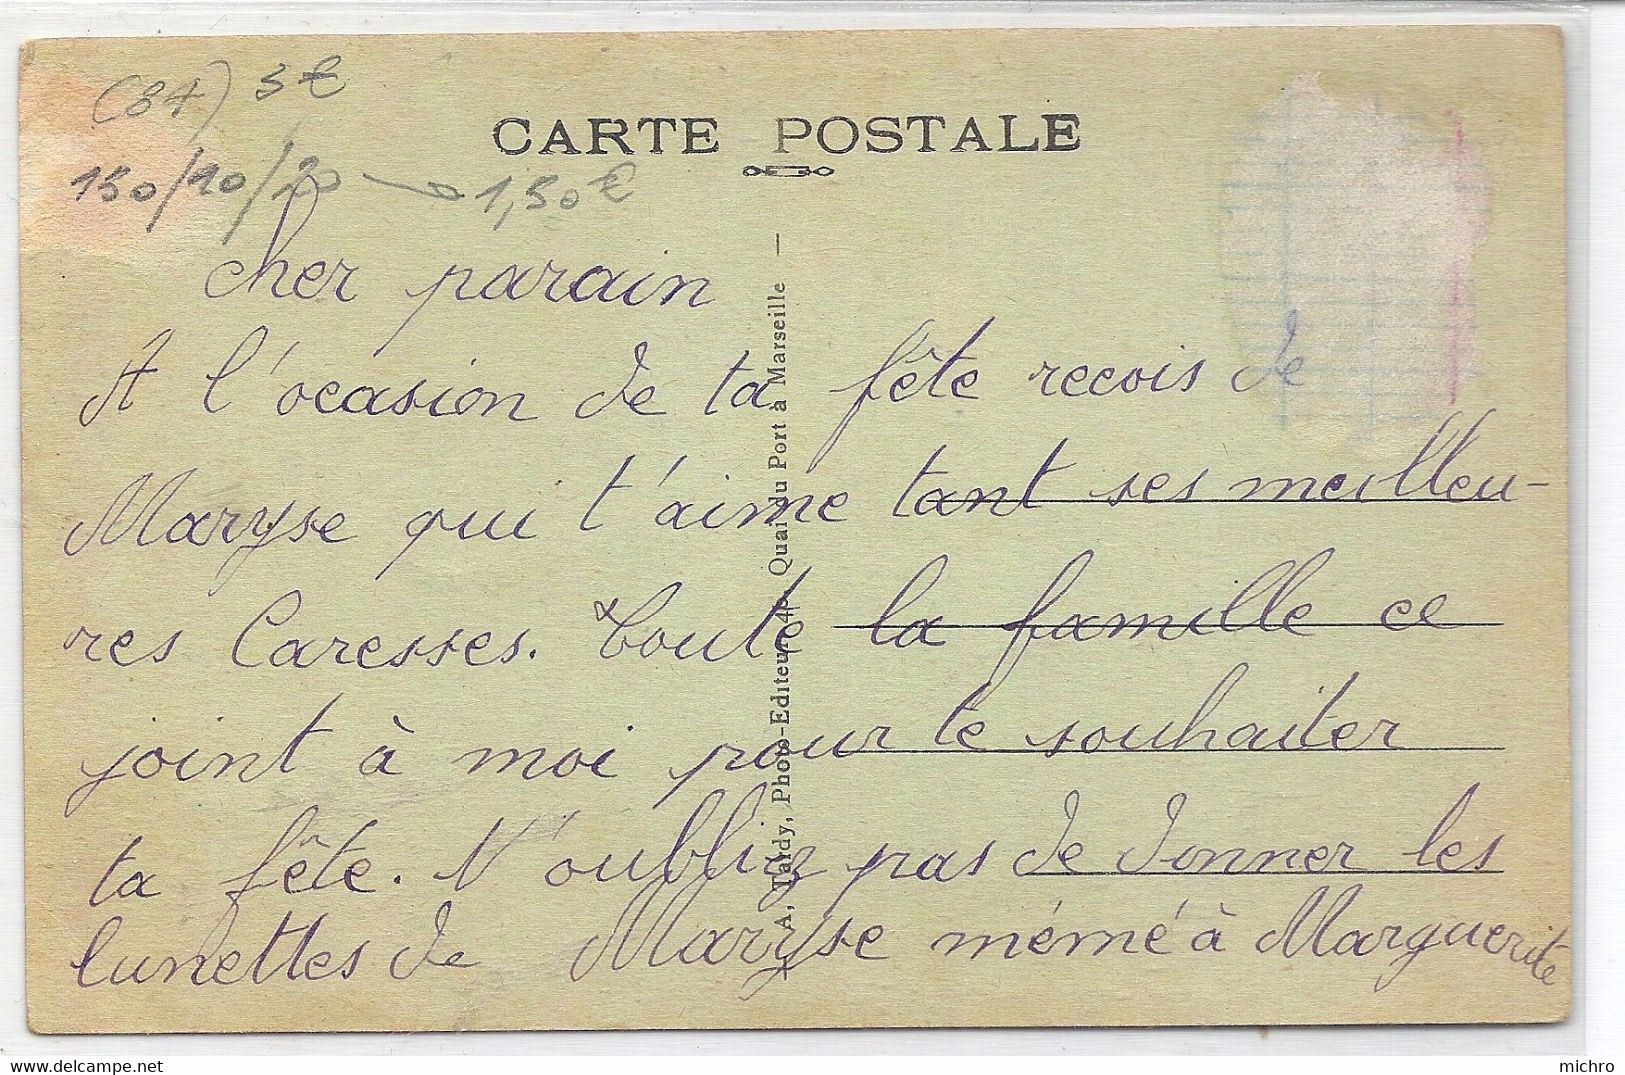 (84) 3€
CARTE POSTALE
150/10/20 → 1,50€
Cher parain
A l'ocasion de ta fête recois de
Maryse qui t'aime tant ses meilleu-
res Caresses. Toute la famille ce
joint à moi pour te souhaiter
ta fête. N'oubliez pas de donner les
lunettes de Maryse mémé à Marguerite
A, Tardy, Photo-Editeur, Quai du Port à Marseille —
delcampe.net
michro